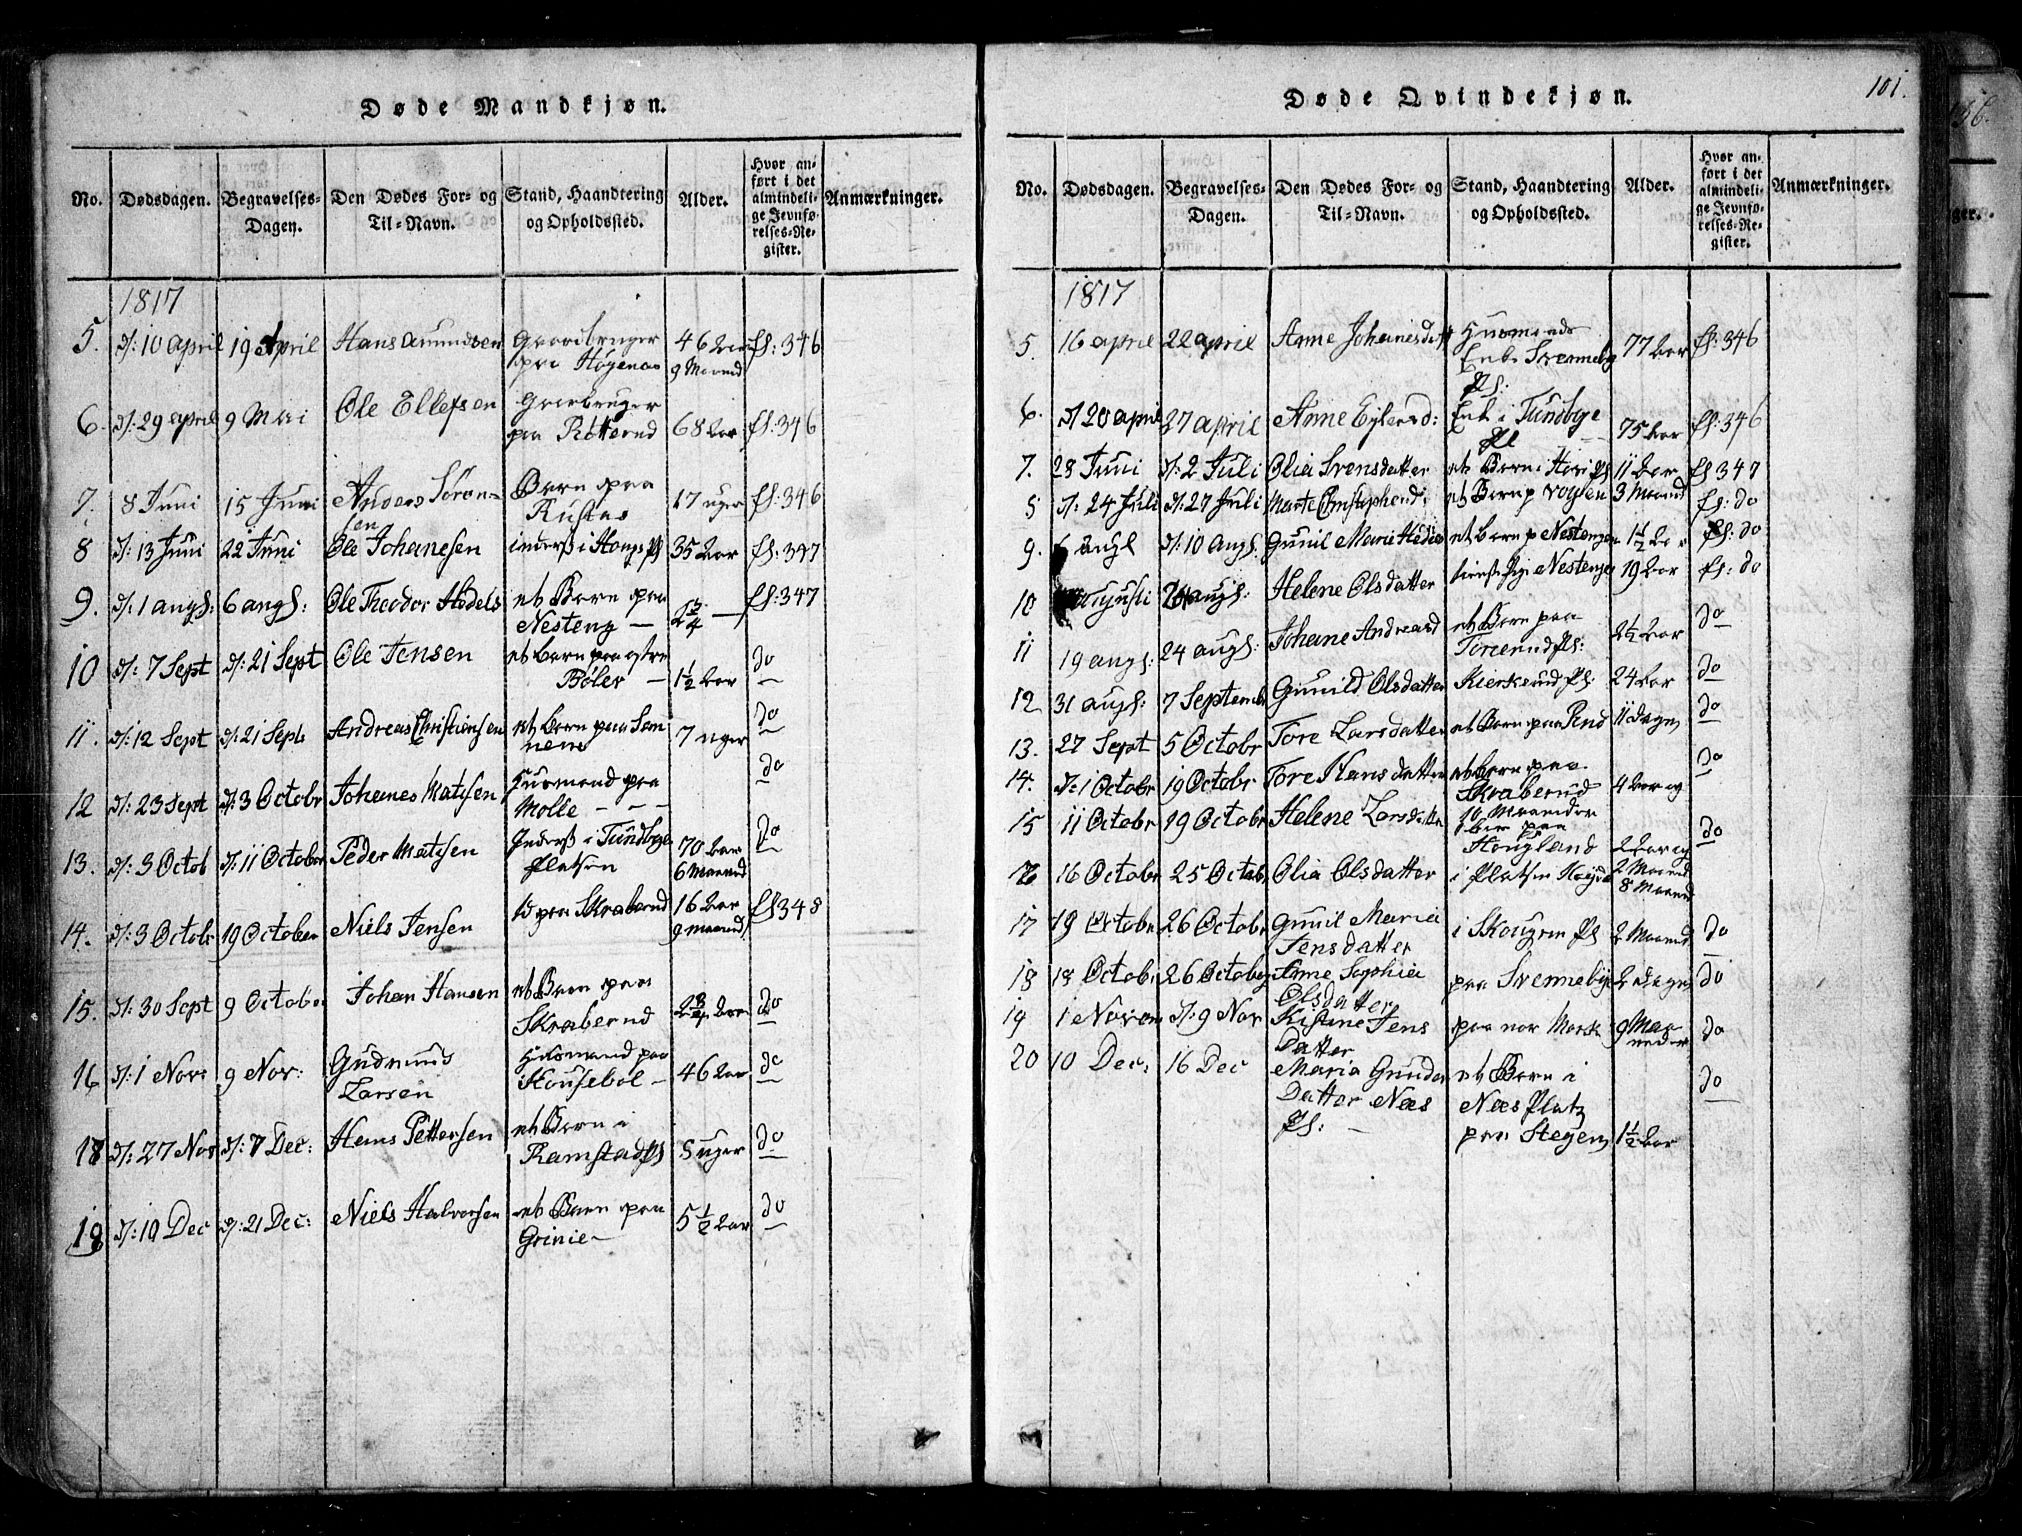 Døde Mandkjøn.
No. Dødsdagen. Begravelses-Dagen. Den Dødes For- og Til-Navn. Stand, Haandtering og Opholdssted. Alder. Hvor anført i det almindelige Jevnførelses-Register. Anmærkninger.
1817
5. d/: 10 april 19 April Hans Amundsen Gaardbruger paa Høgenæs 46 Aar 9 Maaned fl: 346
6. d/: 29 april 9 Mai Ole Ellefsen Gaarbruger paa Røtterud 68 Aar fl: 346
7. 8 Juni 15 Juni Anders Sørensen Barn paa Rustas 17 uger fl: 346
8 d/: 13 Juni 22 Juni Ole Johanesen inderst i Hougs Pl 35 Aar fl: 347
9. d/: 1 augs: 6 augs: Ole Theodor Hedels et Barn paa Nesteng 2 3/4 fl: 347
10 d/: 7 Sept d/: 21 Sept Ole Jensen et barn paa østre Bøler 1 1/2 Aar do
11. d/: 12 Sept d/: 21 Sept Andreas Christiansen et barn paa 7 uger do
12 d/: 23 Sept d/: 3 Octobr Johanes Matisen Husmand paa Molle do
13. d/: 3 Octob d/: 11 October Peder Matisen Inderst i Tundbye Platsen 70 Aar 6 Maaned do
14. d/: 3 Octobr 19 October Niels Jensen paa Skraberud 16 Aar 9 maaned fl 348
15. d/: 30 Sept 9 October Johan Hansen et Barn paa Skraberud 2 3/4 Aar do
16 d/: 1 Nov: 9 Nov: Gudmund Larsen Husmand paa Housebøl 46 Aar do
18 d/: 27 Nov d/: 7 Dec: Hans Pettersen et Barn i Ramstad Pl 5 uger do
19 d/: 10 Dec d/: 21 Dec: Niels Halvorsen et Barn paa Grinie 5 1/2 Aar do
Døde Qvindekjøn.
101.
No. Dødsdagen. Begravelses-Dagen. Den Dødes For- og Til-Navn. Stand, Haandtering og Opholdssted. Alder. Hvor anført i det almindelige Jevnførelses-Register. Anmærkninger.
1817
5. 16 april 22 april Anne Johanesdatt Husmands Enke Svenneby Pl: 77 Aar fl: 346
6. d/ 20 april 27 april Anne Eylersd: Enk i Tundbye Pl 75 Aar fl: 346
7. 28 Juni d/: 2 Juli Olia Svensdatter et Barn i Hovi Pl 11 Aar fl 347
d/: 24 Juli d/: 27 Juli Marte Christophersd: et Barn p Voylen 3 Maaned fl: do
9. augl d/: 10 Augs: Gunil Marie Hedels et barn p Nestengen 1 1/2 Aar fl: do
10 augusti 24 augs: Helene Olsdatter Nestengen 19 Aar fl: do
11 19 augs: 24 augs: Johane Andreasd et Barn paa Torerud Pl: 2 1/2 Aar do
12 31 augs: 7 Septembr Gunild Olsdatter Kierkerud Pl: 24 Aar do
13. 27 Sept 5 Octobr Tore Larsdatter et Barn paa Rud 11 dage do
14. d/: 1 Octobr 19 Octobr Tore Hansdatter et barn paa Skraberud 4 Aar og 10 Maaneder do
15 11 Octobr 19 Octobr Helene Larsdatter paa Hougland 2 Aar og 2 Maaned do
16 16 Octobr 25 Octobr Olia Olsdatter i Platsen 8 Maaned
17 19 Octobr 26 Octobr Gunil Maria Jensdatter i Skougen Pl 2 Maaned do
18 18 Octobr 26 October Anne Sophia Olsdatter paa Svenneby 2 dage do
19 1 Novem d/: 9 Nov Kistine Jens Datter paa nor Mork 9 Maaneder do
20 10 Dec: 16 Dec Maria Gunder Datter Næs Pl: et Barn i Næs Platz paa Stegen 1 1/2 Aar do